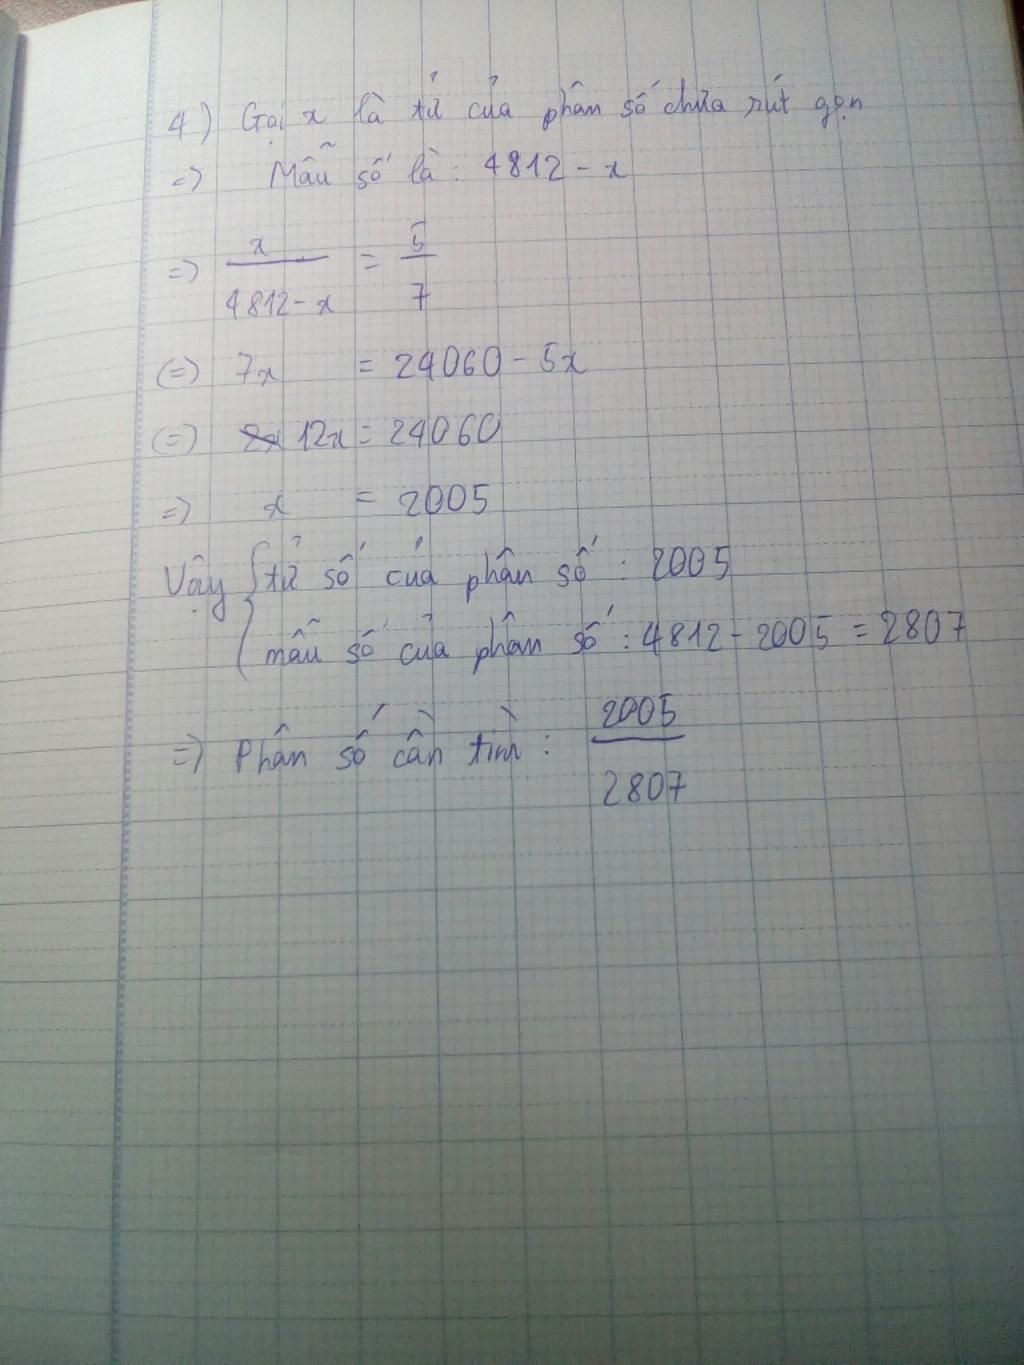 4) Gọi x là tử của phân số chưa rút gọn
=> Mẫu số là: 4812 - x
=> x / 4812 - x = 5 / 7
(=) 7x = 24060 - 5x
(=) 12x = 24060
=> x = 2005
Vậy { tử số của phân số : 2005
mẫu số của phân số : 4812 - 2005 = 2807
=> Phân số cần tìm : 2005 / 2807